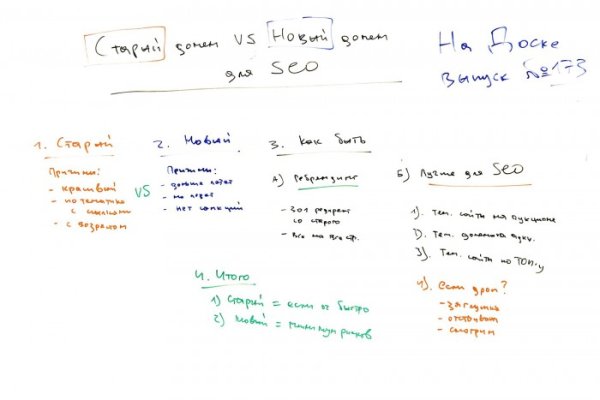 Старый домен VS Новый домен
для SEO
На Доске
выпуск №173
1. Старый
Причины:
- красивый
- по тематике
с ссылками
- с возрастом
VS
2. Новый
Причины:
- дольше
- нет санкций
3. Как быть
А) Ребрендинг
- 301 редирект
со старого
- Все на все стр.
Б) Лучше для SEO
1). Тем. сайты на аукционе
2). Тем. домена аукц.
3). Тем. сайты по ТОП-у
4). Если дроп?
- заглушка
- отстаиваем
- смотрим
4. Итого
1) Старый = если ог быстро
2) Новый = минимум рисков